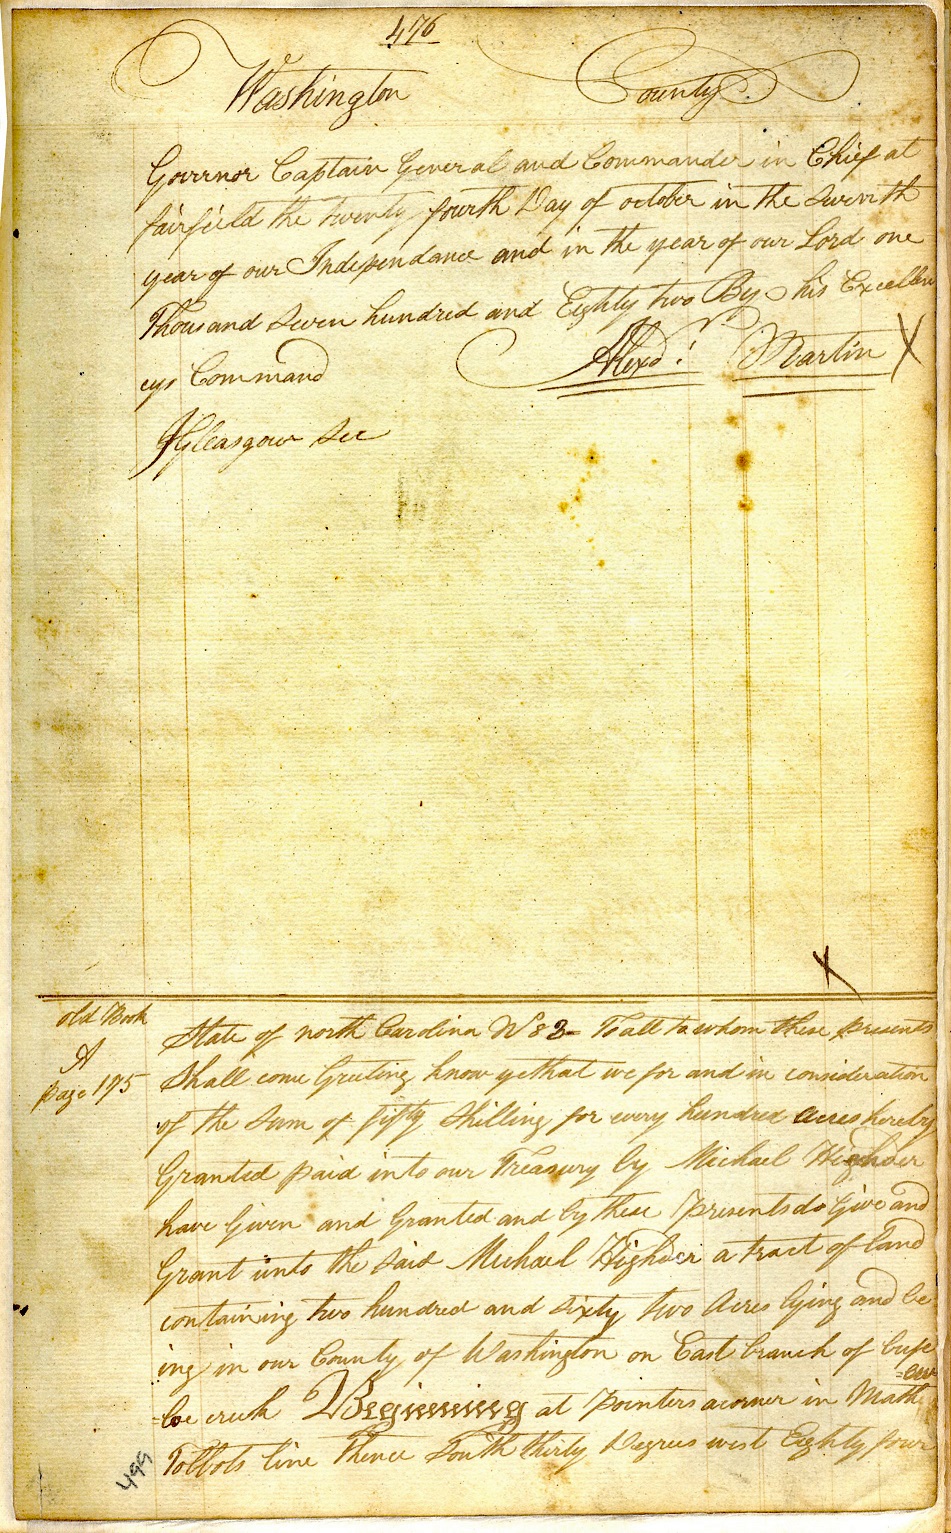 476
Washington County.
Governor Captain General and Commander in Chief at
fairfield the twenty fourth Day of october in the Seventh
year of our Independance and in the year of our Lord one
Thousand Seven hundred and Eighty two By his Excellen
cys Command Alexd: Martin X
JGleasgow Sec
X
old Book
A
page 175
State of north Carolina No 83 To all to whom these presents
Shall come Greeting know ye that we for and in consideration
of the Sum of fifty Shilling for every hundred acres hereby
Granted paid into our Treasury by Michael Highder
have Given and Granted and by these presents do Give and
Grant unto the Said Michael Highder a tract of land
containing two hundred and sixty two Acres lying and be
ing in our County of Washington on East branch of bufe
=low creek Beginning at pointers a corner in Math
=ew
Tolbots line Thence South thirty Degrees west Eighty four
499